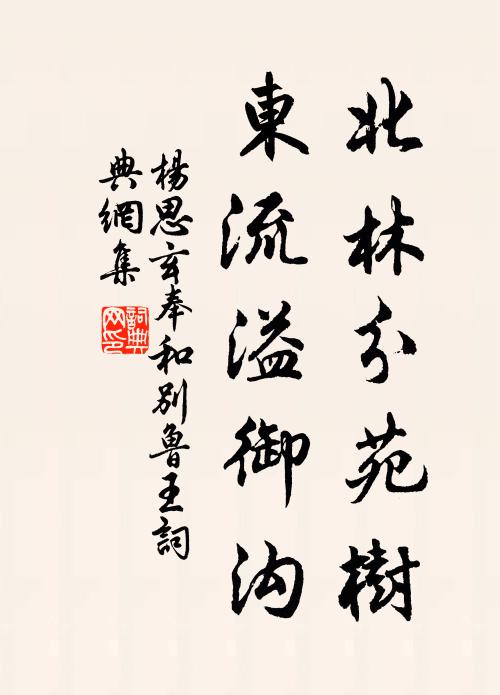 北林分苑樹
東流溢御沟
楊思玄奉和別魯王詞
典網集
詞典网印